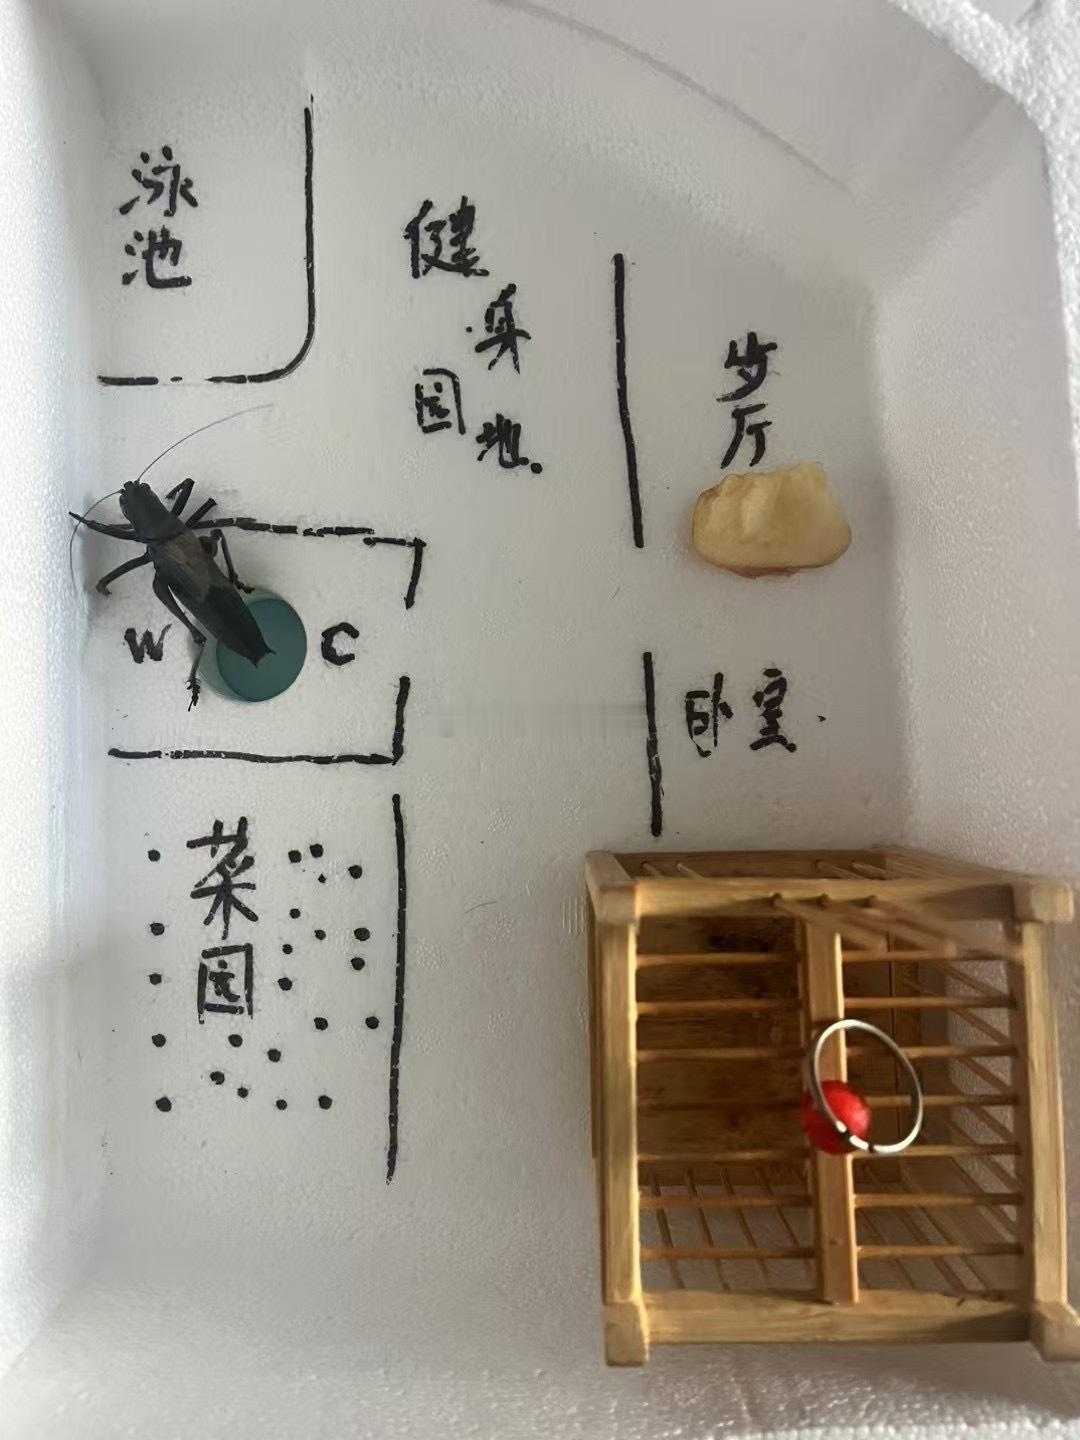 泳池
健身园地.
歺厅
W C
卧室.
菜园